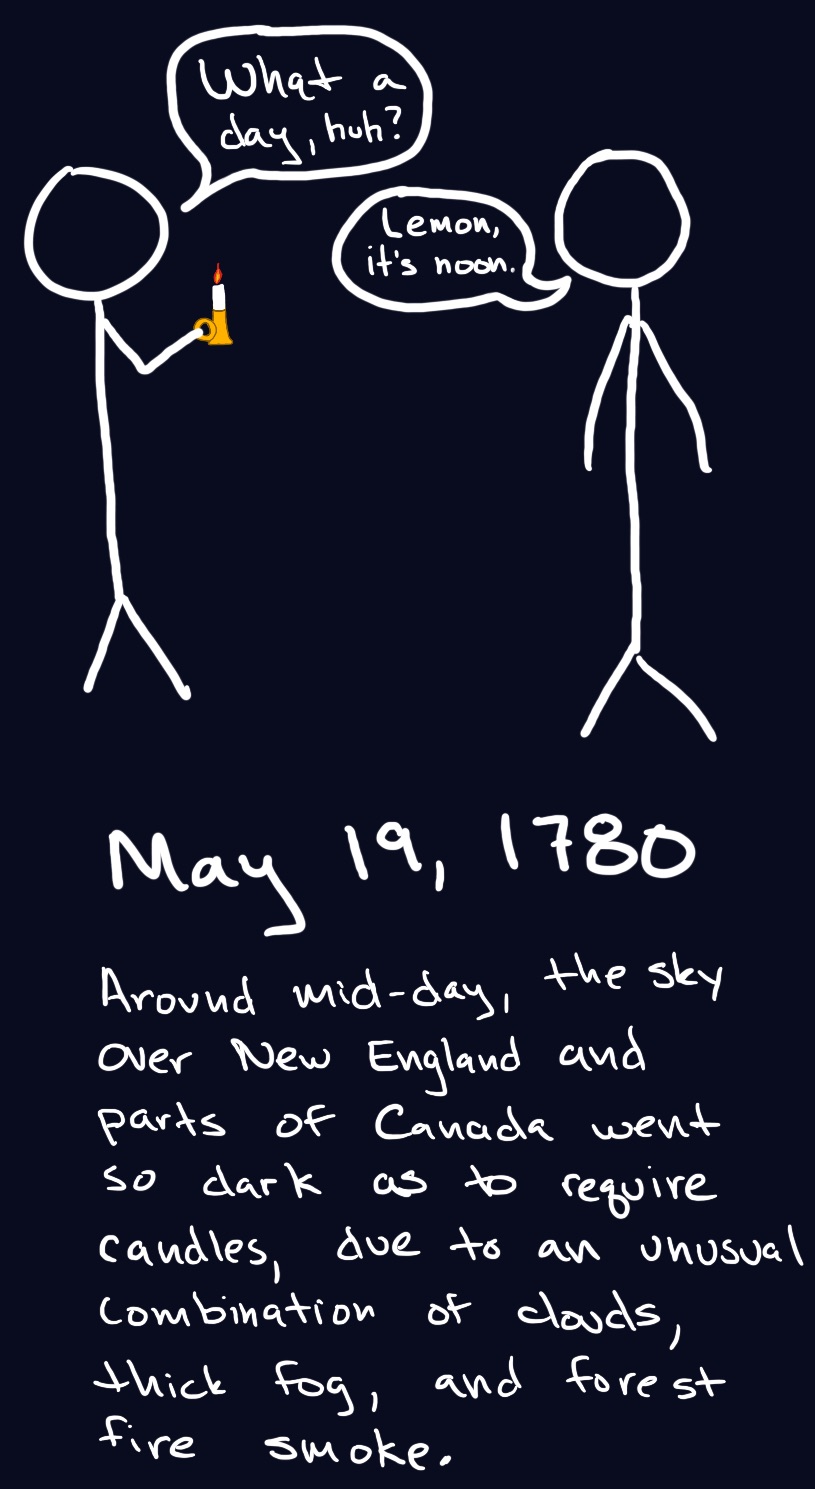 What a
day, huh?
Lemon,
it's noon.
May 19, 1780
Around mid-day, the sky
over New England and
parts of Canada went
so dark as to require
candles, due to an unusual
combination of clouds,
thick fog, and forest
fire smoke.